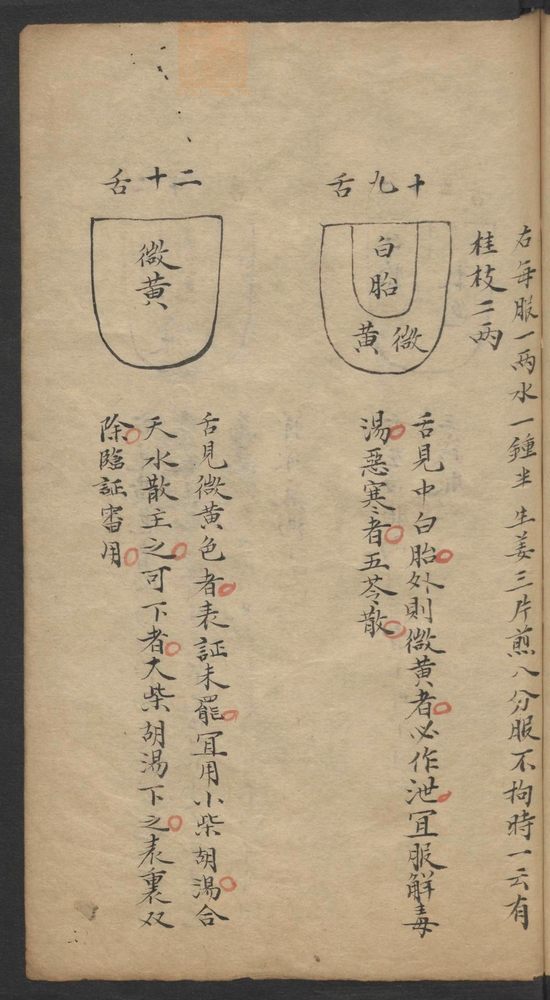 右每服一兩水一鍾半生姜三片煎八分服不拘時一云有
桂枝二兩
十九舌
白胎
微黄
舌見中白胎外則微黄者必作泄宜服解毒
湯惡寒者五苓散
二十舌
微黄
舌見微黄色者表証未罷宜用小柴胡湯合
天水散主之可下者大柴胡湯下之表裏双
除臨証審用